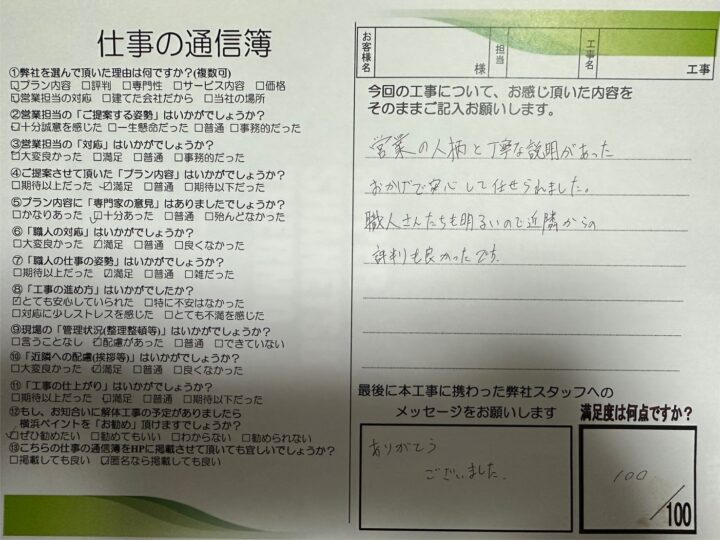 仕事の通信簿
①弊社を選んで頂いた理由は何ですか?(複数可)
☑プラン内容 □評判 □専門性 □サービス内容 □価格
☑営業担当の対応 □建てた会社だから □当社の場所
②営業担当の「ご提案する姿勢」はいかがでしょうか?
☑十分誠意を感じた □一生懸命だった □普通 □事務的だった
③営業担当の「対応」はいかがでしょうか?
☑大変良かった □満足 □普通 □事務的だった
④ご提案させて頂いた「プラン内容」はいかがでしょうか?
□期待以上だった ☑満足 □普通 □期待以下だった
⑤プラン内容に「専門家の意見」はありましたでしょうか?
□かなりあった ☑十分あった □普通 □殆んどなかった
⑥「職人の対応」はいかがでしょうか?
□大変良かった ☑満足 □普通 □良くなかった
⑦「職人の仕事の姿勢」はいかがでしょうか?
□期待以上だった ☑満足 □普通 □雑だった
⑧「工事の進め方」はいかがでしたか?
☑とても安心していられた □特に不安はなかった
□対応に少しストレスを感じた □とても不満を感じた
⑨現場の「管理状況(整理整頓等)」はいかがでしょうか?
□言うことなし ☑配慮があった □普通 □できていない
⑩「近隣への配慮(挨拶等)」はいかがでしょうか?
□大変良かった ☑満足 □普通 □良くなかった
⑪「工事の仕上がり」はいかがでしょうか?
□期待以上だった ☑満足 □普通 □期待以下だった
⑫もし、お知合いに解体工事の予定がありましたら
横浜ペイントを「お勧め」頂けますでしょうか?
☑ぜひ勧めたい □勧めてもいい □わからない □勧められない
⑬こちらの仕事の通信簿をHPに掲載させて頂いても宜しいでしょうか?
□掲載しても良い ☑匿名なら掲載しても良い
お客様名 様 担当 工事名 工事
今回の工事について、お感じ頂いた内容を
そのままご記入お願いします。
営業の人柄と丁寧な説明があった
おかげで安心して任せられました。
職人さんたちも明るいので近隣からの
評判も良かったです。
最後に本工事に携わった弊社スタッフへの
メッセージをお願いします
ありがとう
ございました。
満足度は何点ですか?
100
/100